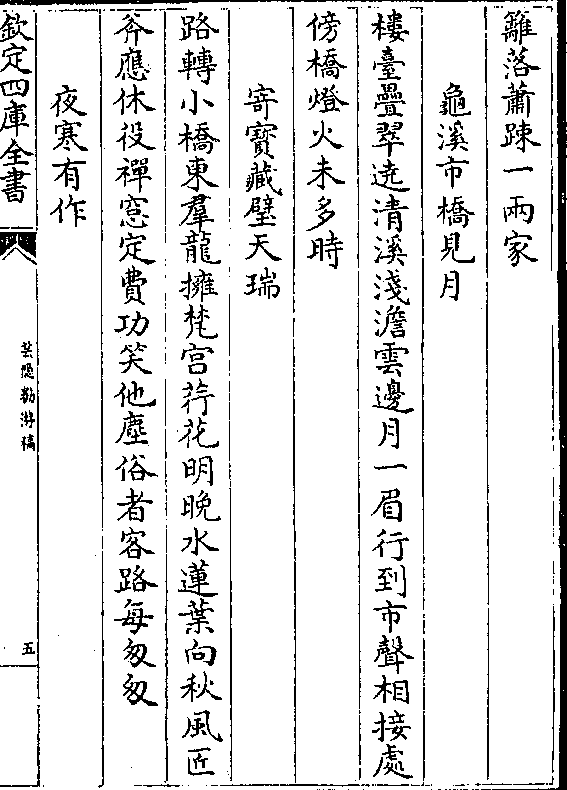 籬落蕭踈一兩家
龜溪市橋見月
樓臺疊翠遶清溪淺澹雲邊月一眉行到市聲相接處
傍橋燈火未多時
寄寶藏璧天瑞
路轉小橋東羣龍擁梵宫荇花明晚水蓮葉向秋風匠
斧應休役禪窓定費功笑他塵俗者客路每匆匆
夜寒有作
欽定四庫全書
芸隱勌游稿
五